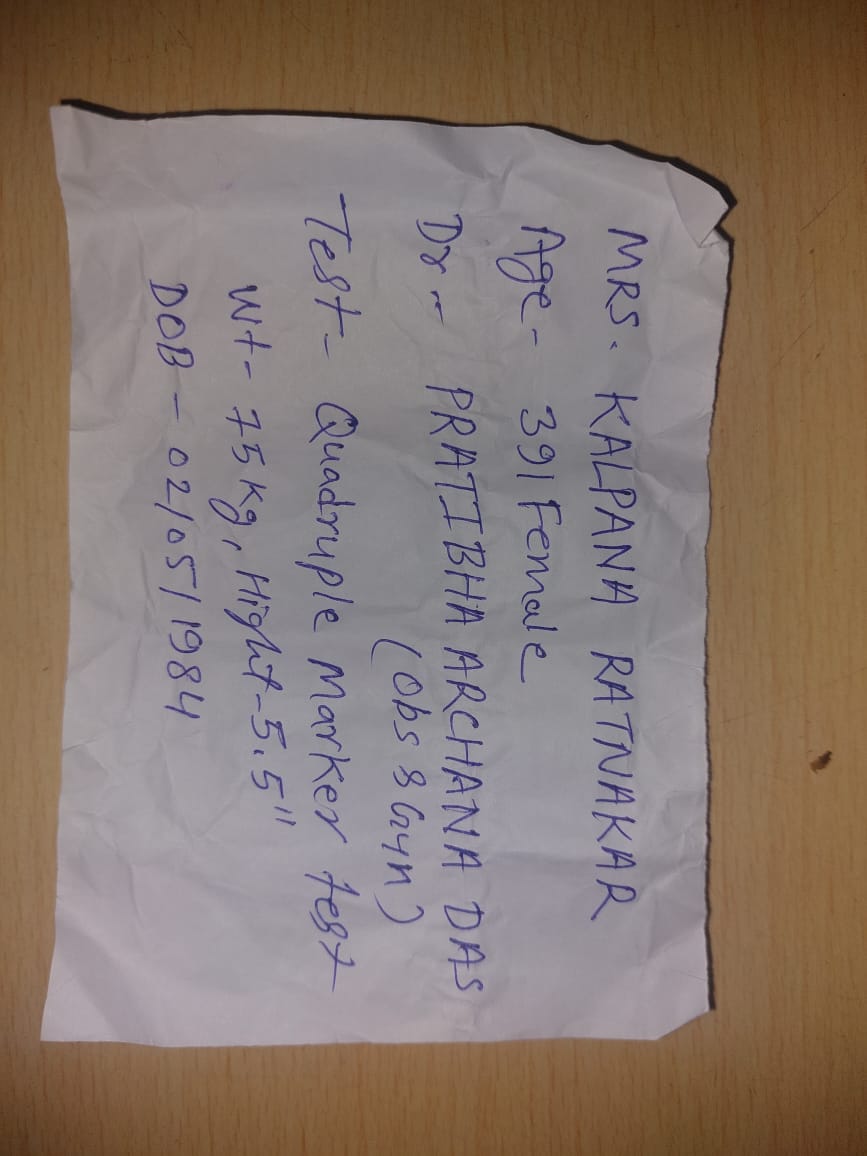 MRS. KALPANA RATNAKAR
Age- 39/Female
Dr - PRATIBHA ARCHANA DAS
(Obs & Gyn)
Test- Quadruple Marker test
Wt- 75 kg, Hight-5.5"
DOB - 02/05/1984